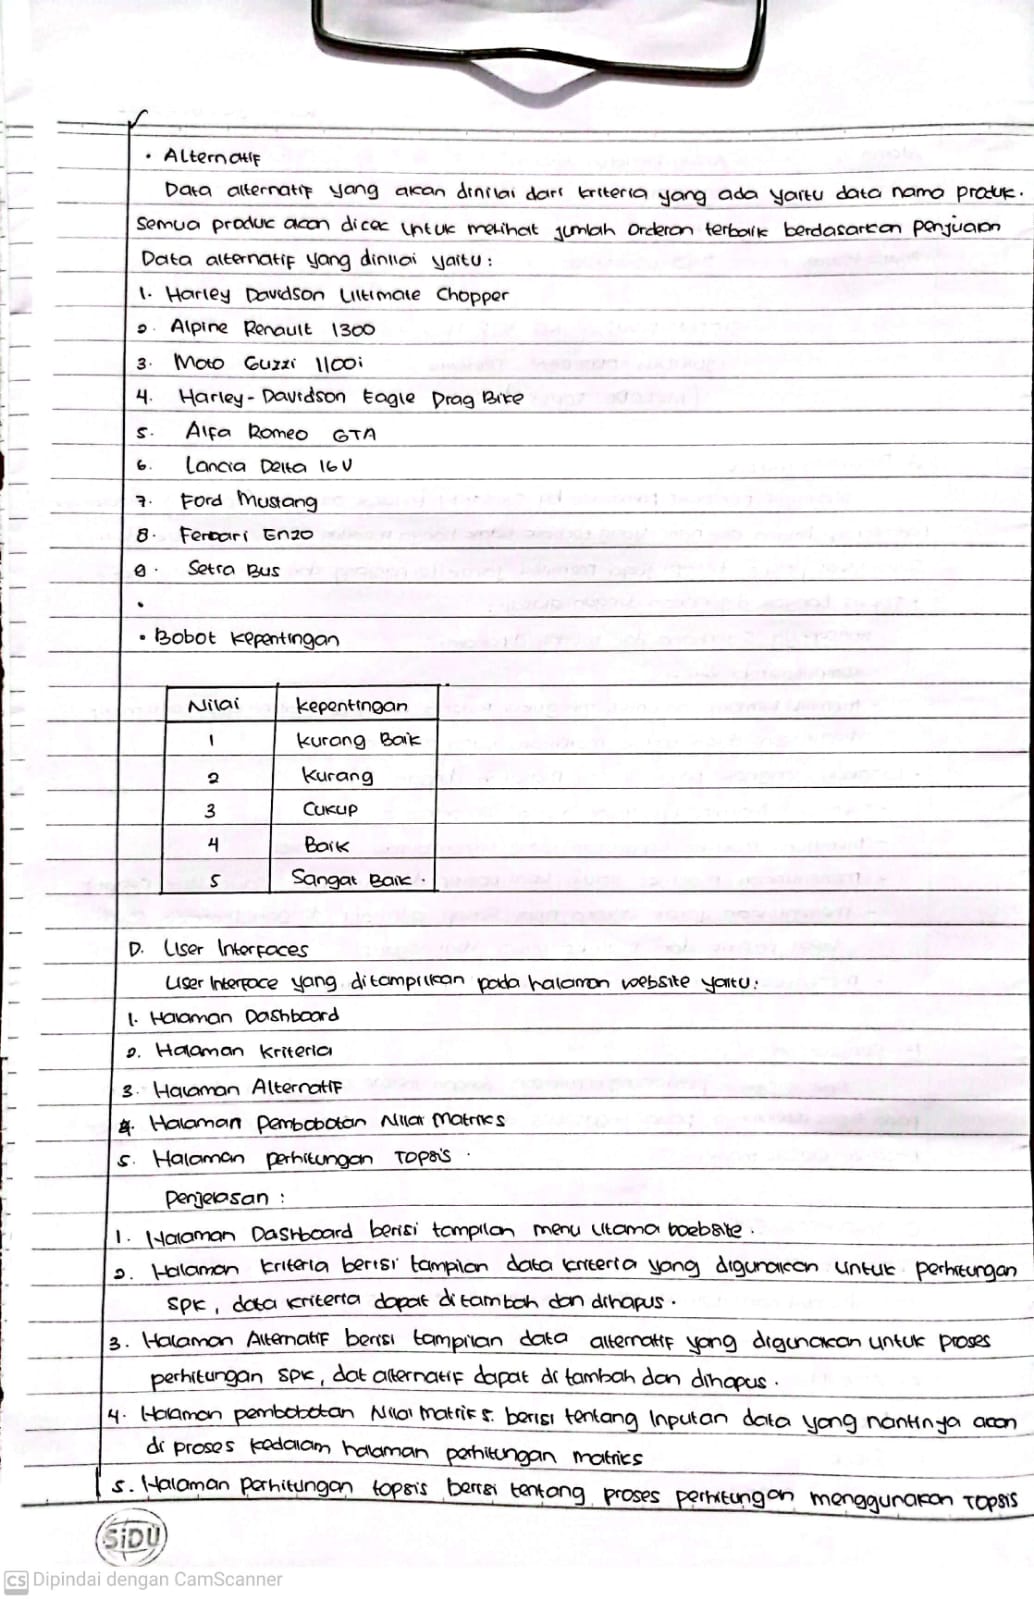 • Alternatif
Data alternatif yang akan dinilai dari kriteria yang ada yaitu data nama produk.
Semua produk akan dicek untuk melihat jumlah Orderan terbaik berdasarkan penjualan
Data alternatif yang dinilai yaitu:
1. Harley Davidson Ultimate Chopper
2. Alpine Renault 1300
3. Moto Guzzi 1100i
4. Harley-Davidson Eagle Drag Bike
5. Alfa Romeo GTA
6. Lancia Delta 16 V
7. Ford Mustang
8. Ferrari Enzo
9. Setra Bus
•
• Bobot kepentingan
Nilai kepentingan
1 kurang Baik
2 kurang
3 Cukup
4 Baik
5 Sangat Baik.
D. User Interfaces
User Interface yang ditampilkan pada halaman website yaitu:
1. Halaman Dashboard
2. Halaman kriteria
3. Halaman Alternatif
4. Halaman Pembobotan Nilai Matriks
5. Halaman perhitungan TOPSIS.
Penjelasan :
1. Halaman Dashboard berisi tampilan menu utama website.
2. Halaman kriteria berisi tampilan data kriteria yang digunakan untuk perhitungan
SPK, data kriteria dapat di tambah dan dihapus.
3. Halaman Alternatif berisi tampilan data alternatif yang digunakan untuk proses
perhitungan SPK, dat alternatif dapat di tambah dan dihapus.
4. Halaman pembobotan Nilai Matriks. berisi tentang Inputan data yang nantinya akan
di proses kedalam halaman perhitungan matriks
5. Halaman Perhitungan topsis berisi tentang proses perhitungan menggunakan TOPSIS
SiDU
CS Dipindai dengan CamScanner